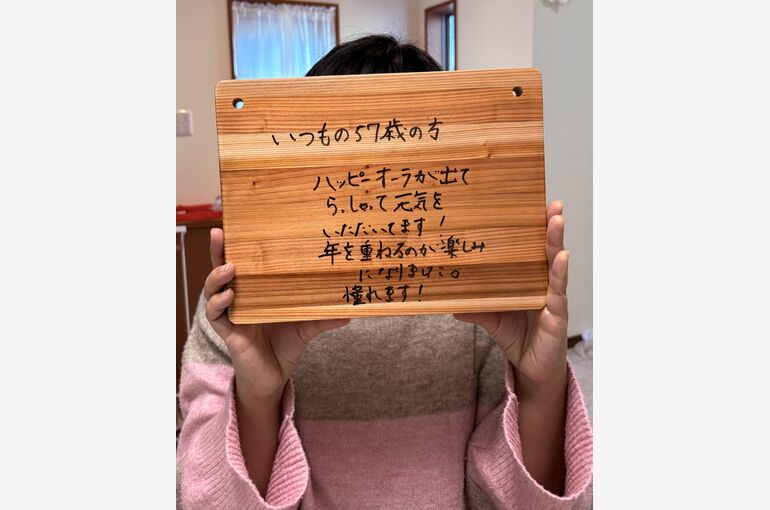 いつもの57歳の方
ハッピーオーラが出て
らっしゃって元気を
いただいてます！
年を重ねるのが楽しみ
になりました。
憧れます！